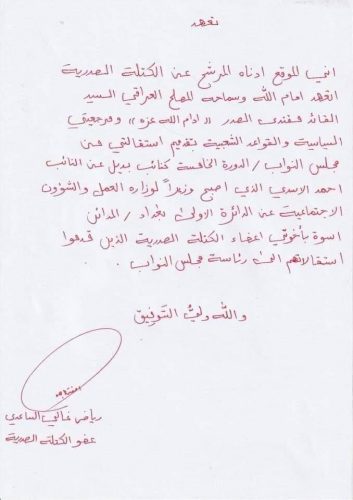 تعهد
اني الموقع ادناه المرشح عن الكتلة الصدرية
اتعهد امام الله وسماحة المصلح العراقي السيد
القائد مقتدى الصدر "ادام الله عزه" ومرجعيتي
السياسية والقواعد الشعبية بتقديم استقالتي من
مجلس النواب / الدورة الخامسة كنائب بديل عن النائب
احمد الاسدي الذي اصبح وزيراً لوزارة العمل والشؤون
الاجتماعية عن الدائرة الاولى بغداد / المدائن
اسوة بأخوتي اعضاء الكتلة الصدرية الذين قدموا
استقالاتهم الى رئاسة مجلس النواب.
والله ولي التوفيق
رياض غالي الساعدي
عضو الكتلة الصدرية